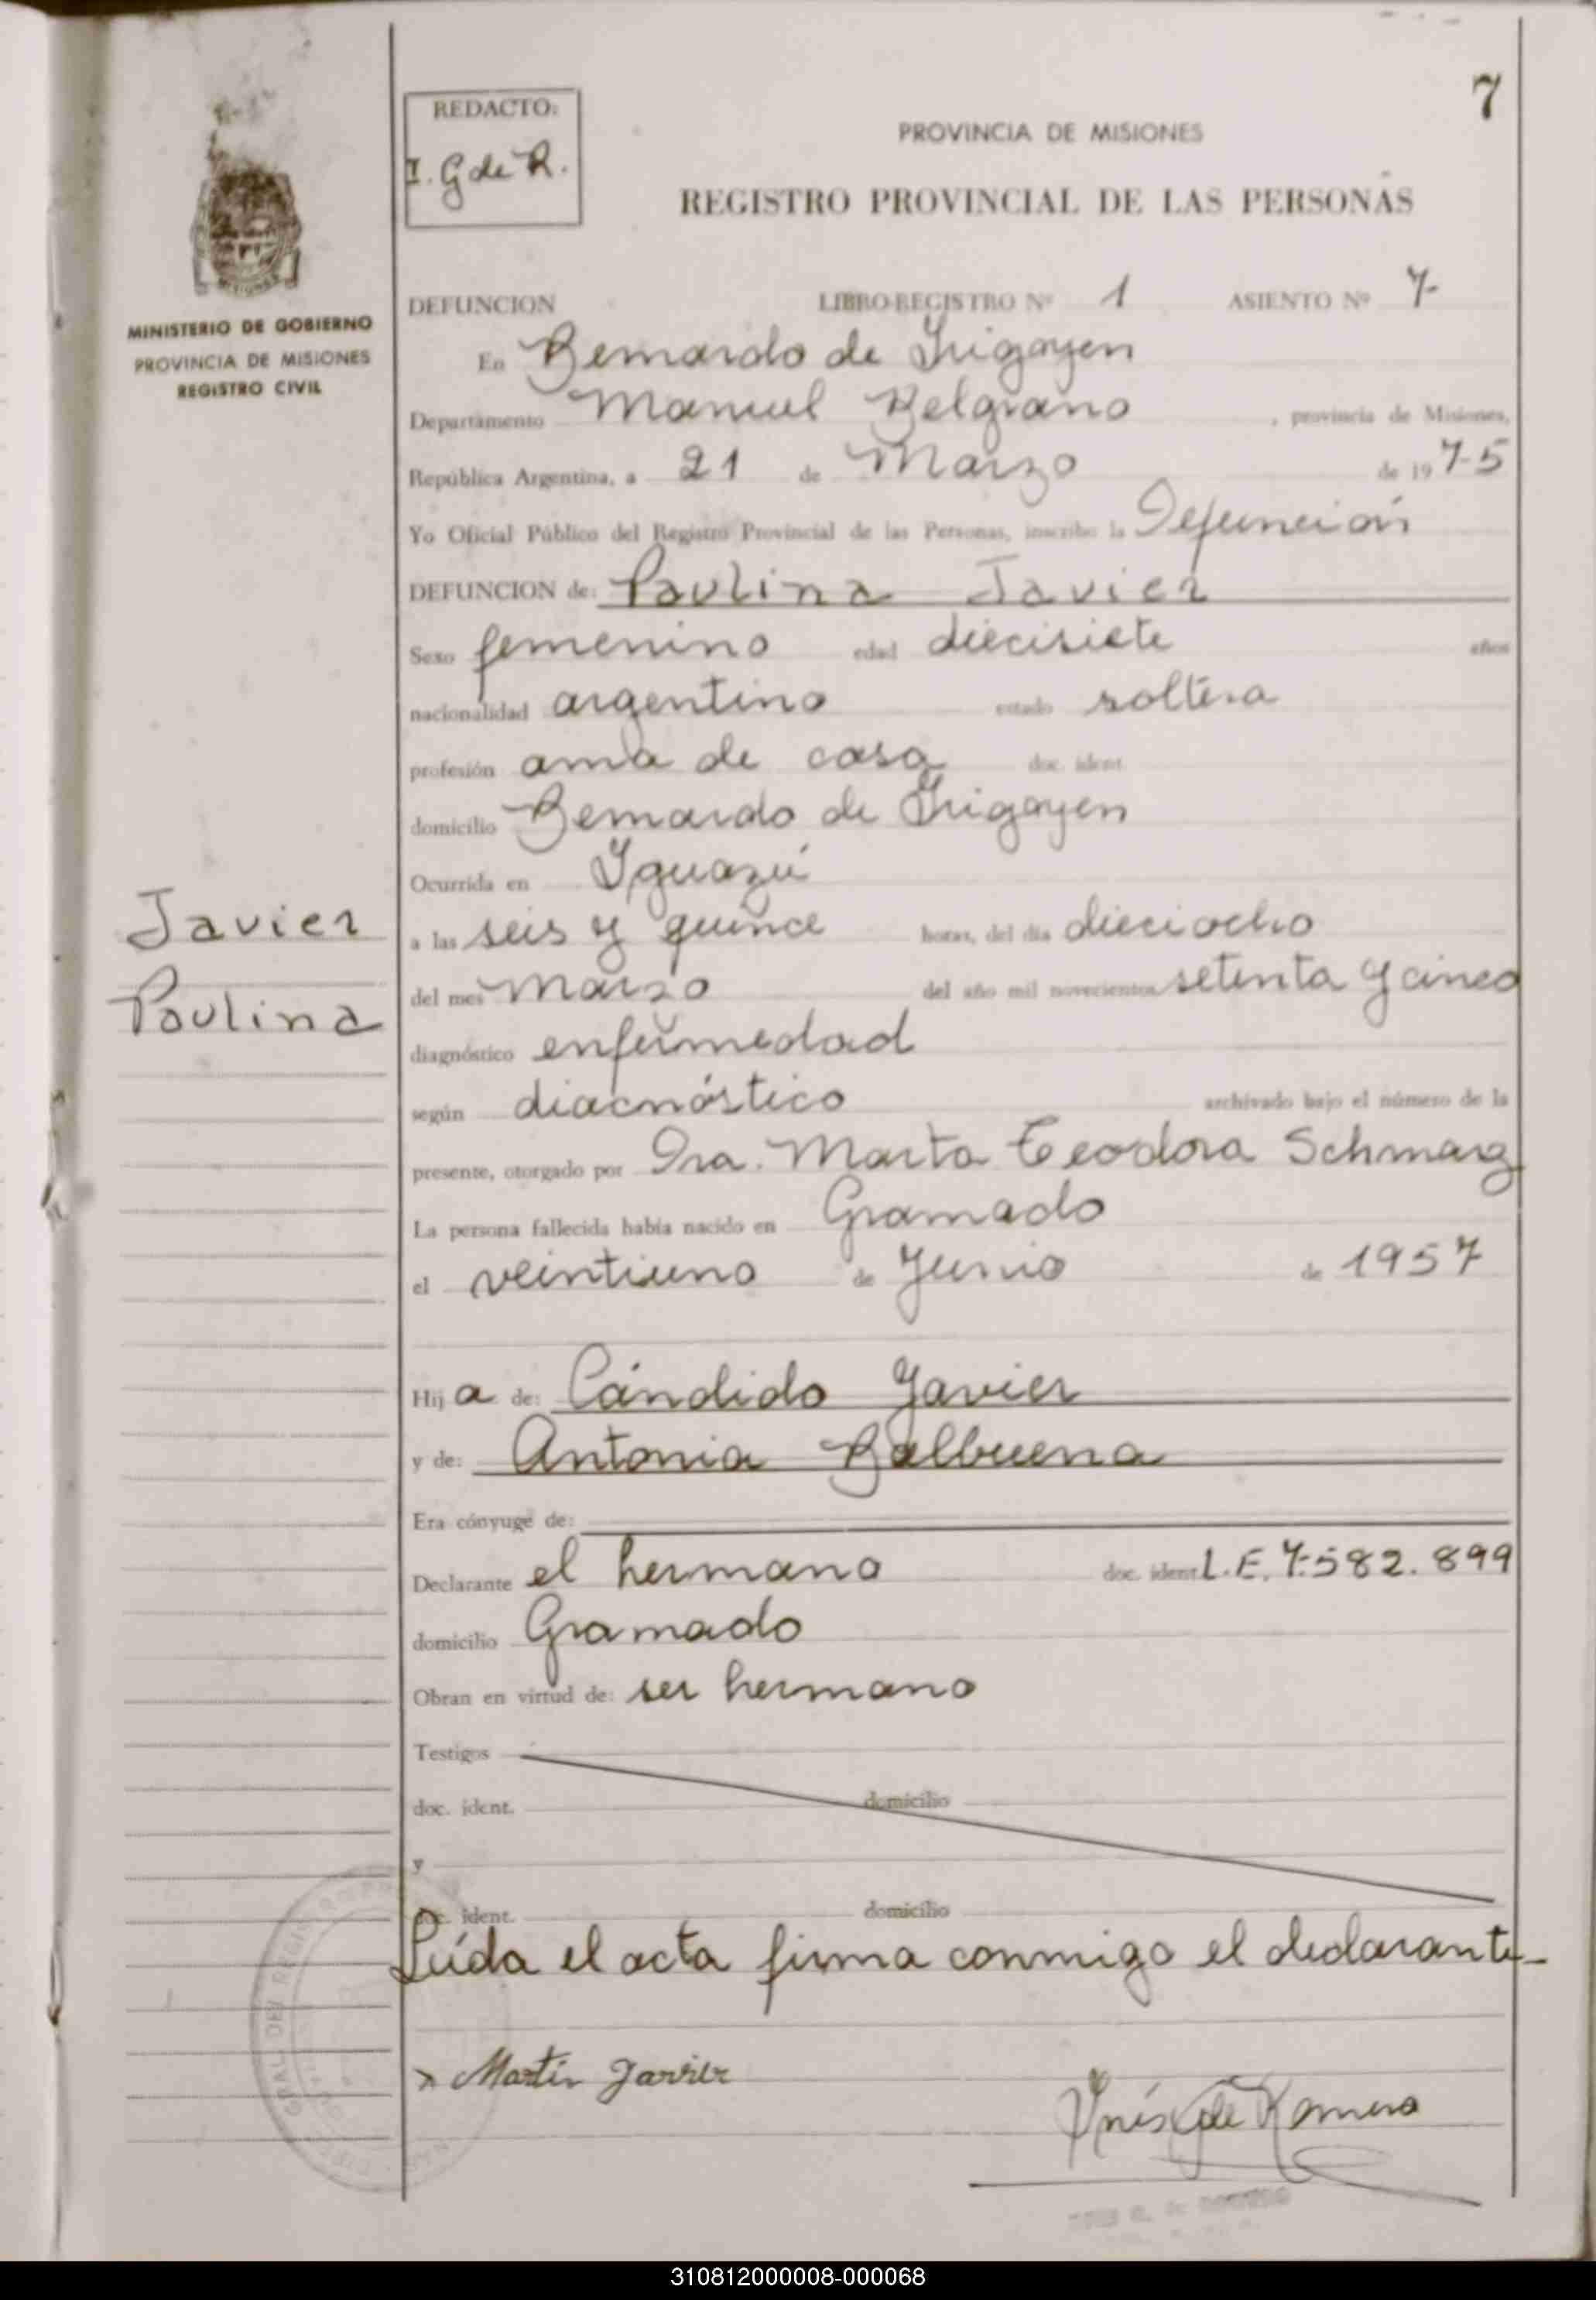 7
REDACTO:
I. G de R.
PROVINCIA DE MISIONES
REGISTRO PROVINCIAL DE LAS PERSONAS
MINISTERIO DE GOBIERNO
PROVINCIA DE MISIONES
REGISTRO CIVIL
DEFUNCION LIBRO-REGISTRO Nº 1 ASIENTO Nº 7
En Bernardo de Irigoyen
Departamento Manuel Belgrano , provincia de Misiones,
República Argentina, a 21 de Marzo de 19 75
Yo Oficial Público del Registro Provincial de las Personas, inscribo la Defunción
DEFUNCION de: Paulina Javier
Sexo femenino edad diecisiete años
nacionalidad argentina estado soltera
profesión ama de casa doc. ident.
domicilio Bernardo de Irigoyen
Ocurrida en Iguazú
Javier
a las seis y quince horas, del día dieciocho
Paulina
del mes Marzo del año mil novecientos setenta y cinco
diagnóstico enfermedad
según diacnóstico archivado bajo el número de la
presente, otorgado por Dra. Marta Teodora Schmarg
La persona fallecida había nacido en Gramado
el veintiuno de Junio de 1957
Hij a de: Cándido Javier
y de: Antonia Balbuena
Era cónyuge de:
Declarante el hermano doc. ident. L.E. 7.582.899
domicilio Gramado
Obran en virtud de: ser hermano
Testigos
doc. ident. domicilio
y
doc. ident. domicilio
Leída el acta firma conmigo el declarante-
x Martín Javier
Inés G de Romero
310812000008-000068